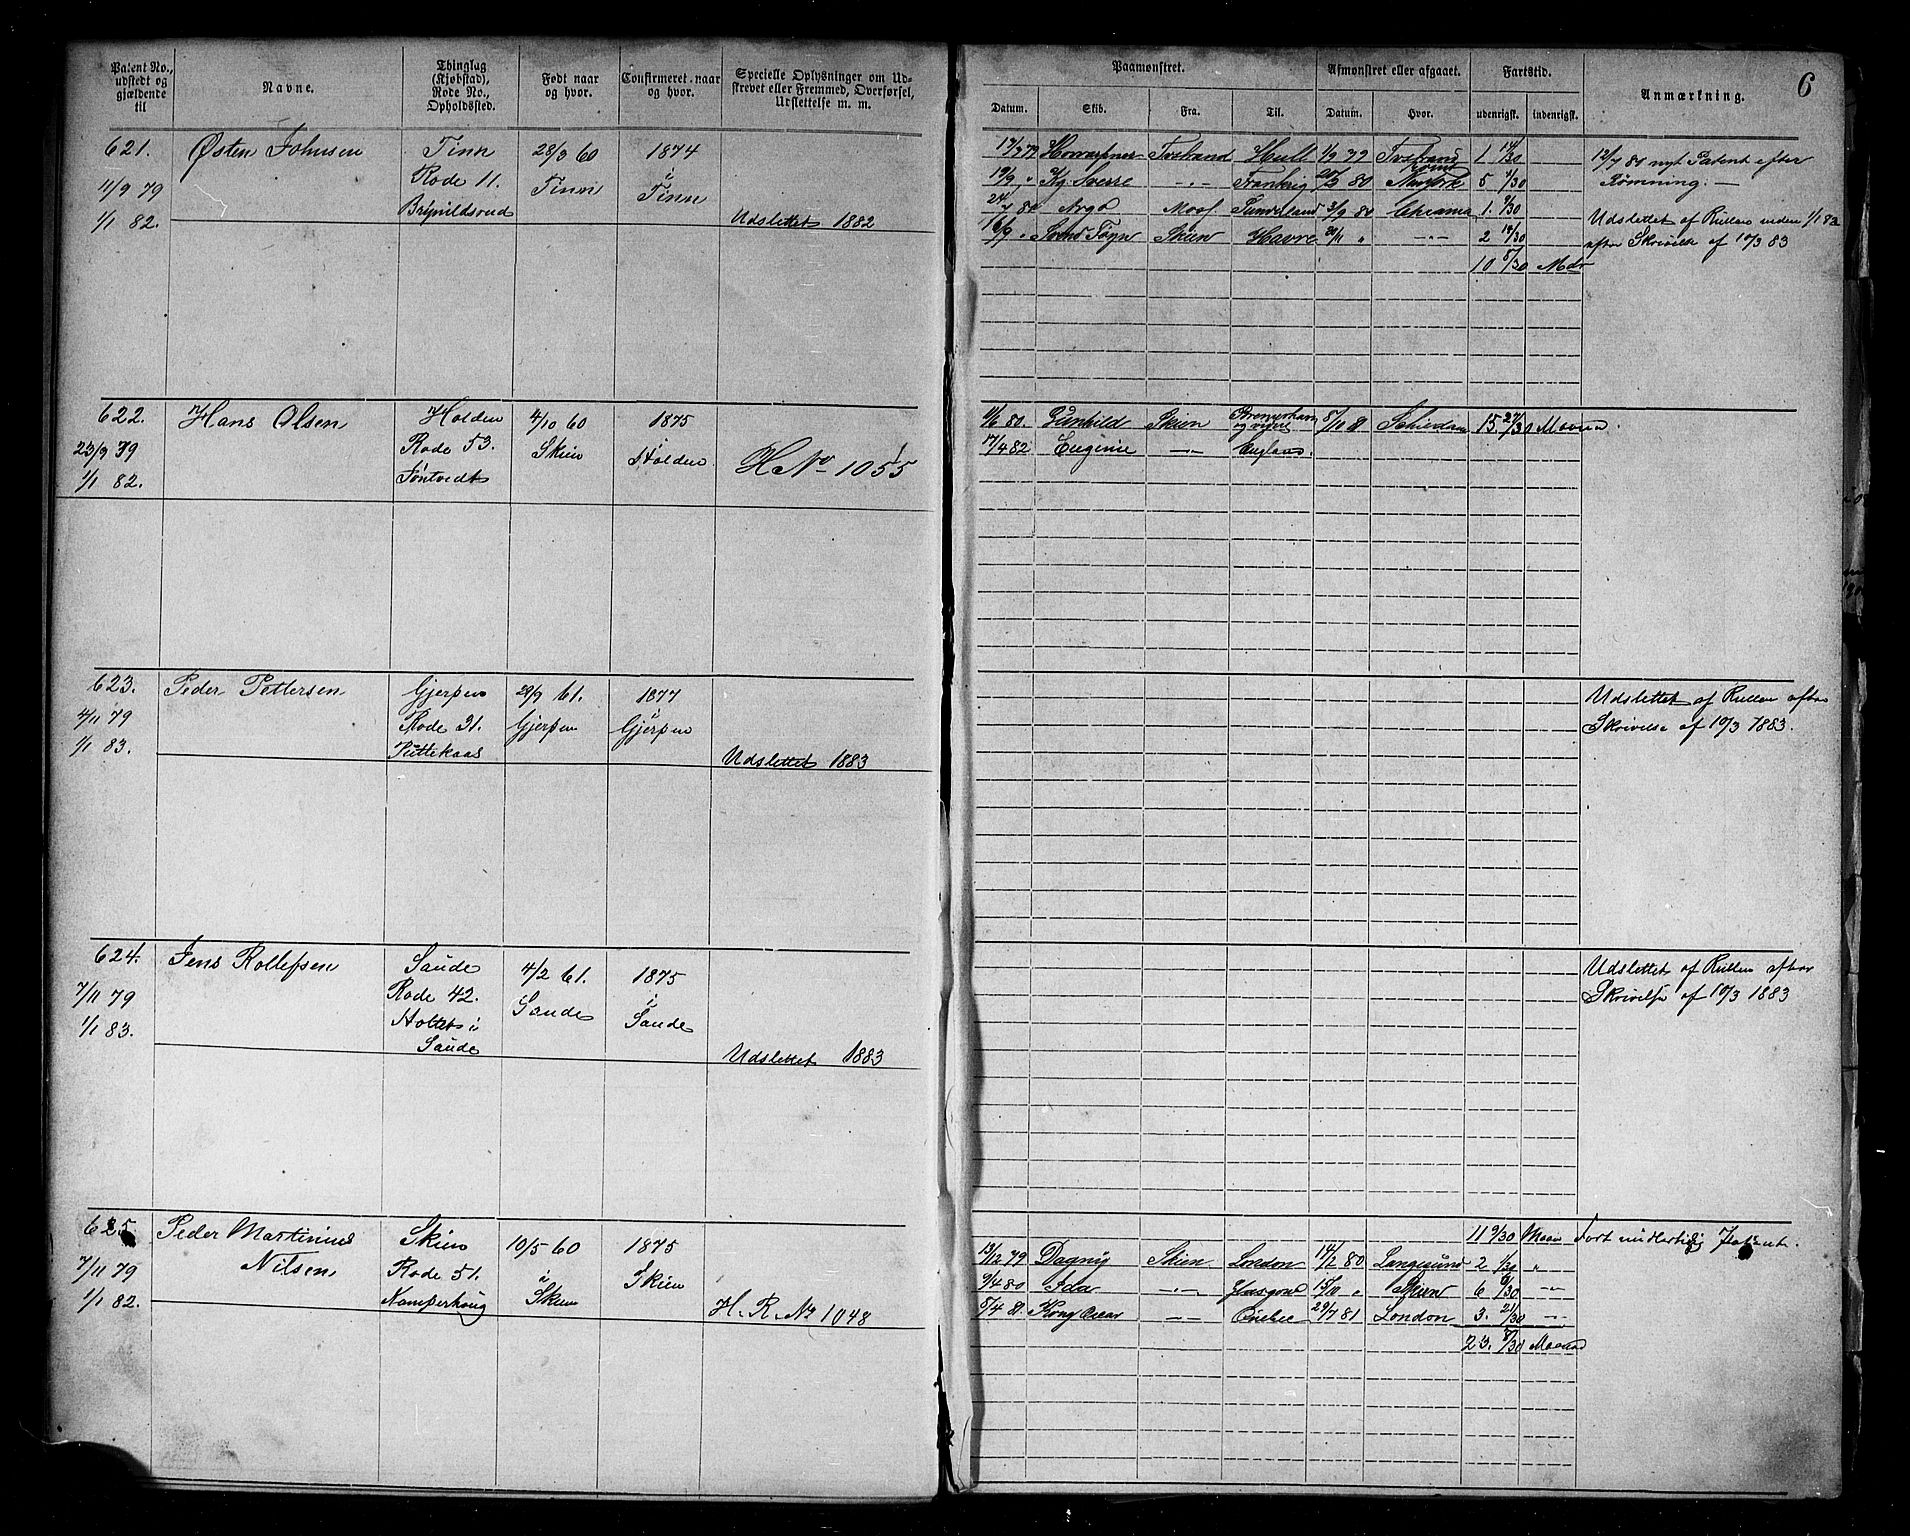 Patent No., udstedt og gjældende til
Navne.
Thinglag (Kjøbstad), Rode No., Opholdssted.
Født naar og hvor.
Confirmeret naar og hvor.
Specielle Oplysninger om Udskrevet eller Fremmed, Overførsel, Udslettelse m. m.
Paamønstret.
Afmønstret eller afgaaet.
Fartstid.
Anmærkning.
6
Datum.
Skib.
Fra.
Til.
Datum.
Hvor.
udenrigsk.
indenrigsk.
621. Østen Johnsen Tinn 28/3 60 1874
11/9 79 Rode 11. Tinn i Tinn
1/1 82. Brynildsrud Udslettet 1882
Hull 1/9 79 1 14/30
19/9 " Kg. Sverre -"- Frankrig 80 Newyork 5 1/30
24/7 80 Argo Moss Sunderland 3/9 80 Chrania 1. 9/30
16/9 " Tøgn Skien Havre 20/11 " -"- 2 14/30
10 8/30 Mdr
12/7 80 nyt Patent efter
Rømning. —
Udslettet af Rullen inden 1/1 83
efter Skrivelse af 10/3 83
622. Hans Olsen Holden 4/10 60 1875
23/9 79 Rode 53. Skien i Holden
1/1 82. Tøntvedt H No 1055
11/6 80. Gunhild Skien Bremerhaven og videre 8/10 81 Schiedam 15 27/30 Maaned.
17/4 82 Eugenie -"- England.
623. Peder Pettersen Gjerpen 29/9 61. 1877
4/11 79 Rode 21. Gjerpen i Gjerpen
1/1 83. Udslettet 1883
Udslettet af Rullen efter
Skrivelse af 10/3 1883.
624. Jens Rollefsen Saude 4/2 61. 1875
7/11 79 Rode 42. Saude i Saude
1/1 83. Holtet i
Saude Udslettet 1883
Udslettet af Rullen efter
Skrivelse af 10/3 1883
625. Peder Martinius Skien 10/5 60 1875
7/11 79 Nilsen Rode 51. i Skien i Skien
1/1 82. Kamperhoug H. R. No 1048
11 9/30 Maan Fort midlertidig Patent.
13/12 79 Dagny Skien London 14/2 80 Langesund 2 1/30 "
9/4 80 -"- Glasgow 15/10 " Skien 6 6/30 -"-
5/4 81. Kong Oscar -"- Quebec 29/7 81 London 3. 21/30 -"-
23. 8/30 Maaned